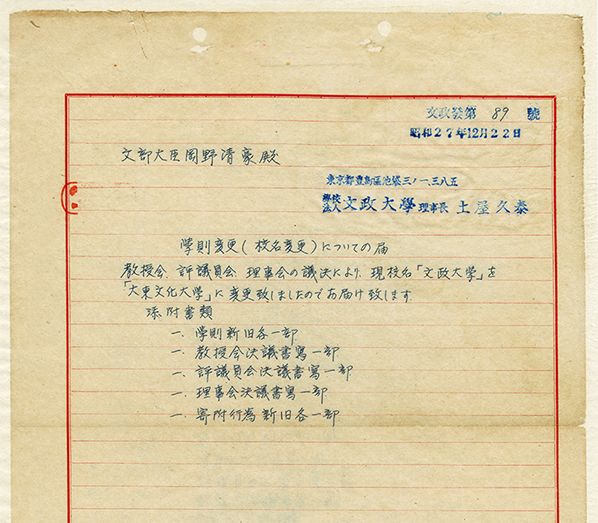 文政發第 89 號
昭和27年12月22日
文部大臣岡野清豪殿
東京都豊島區池袋三ノ一、三八五
學校法人 文政大學 理事長 土屋久泰
学則変更(校名変更)についての届
教授会、評議員会、理事会の議決により、現校名「文政大学」を
「大東文化大学」に変更致しましたのでお届け致します
添附書類
一、学則新旧各一部
一、教授会決議書寫一部
一、評議員会決議書寫一部
一、理事会決議書寫一部
一、寄附行為新旧各一部